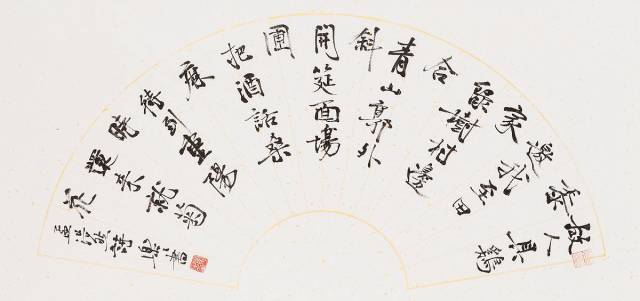 故人具鷄
黍
邀我至田
家
綠樹村邊
合
青山郭外
斜
開筵面場
圃
把酒話桑
麻
待到重陽
還來就菊
花
孟浩然詩 書